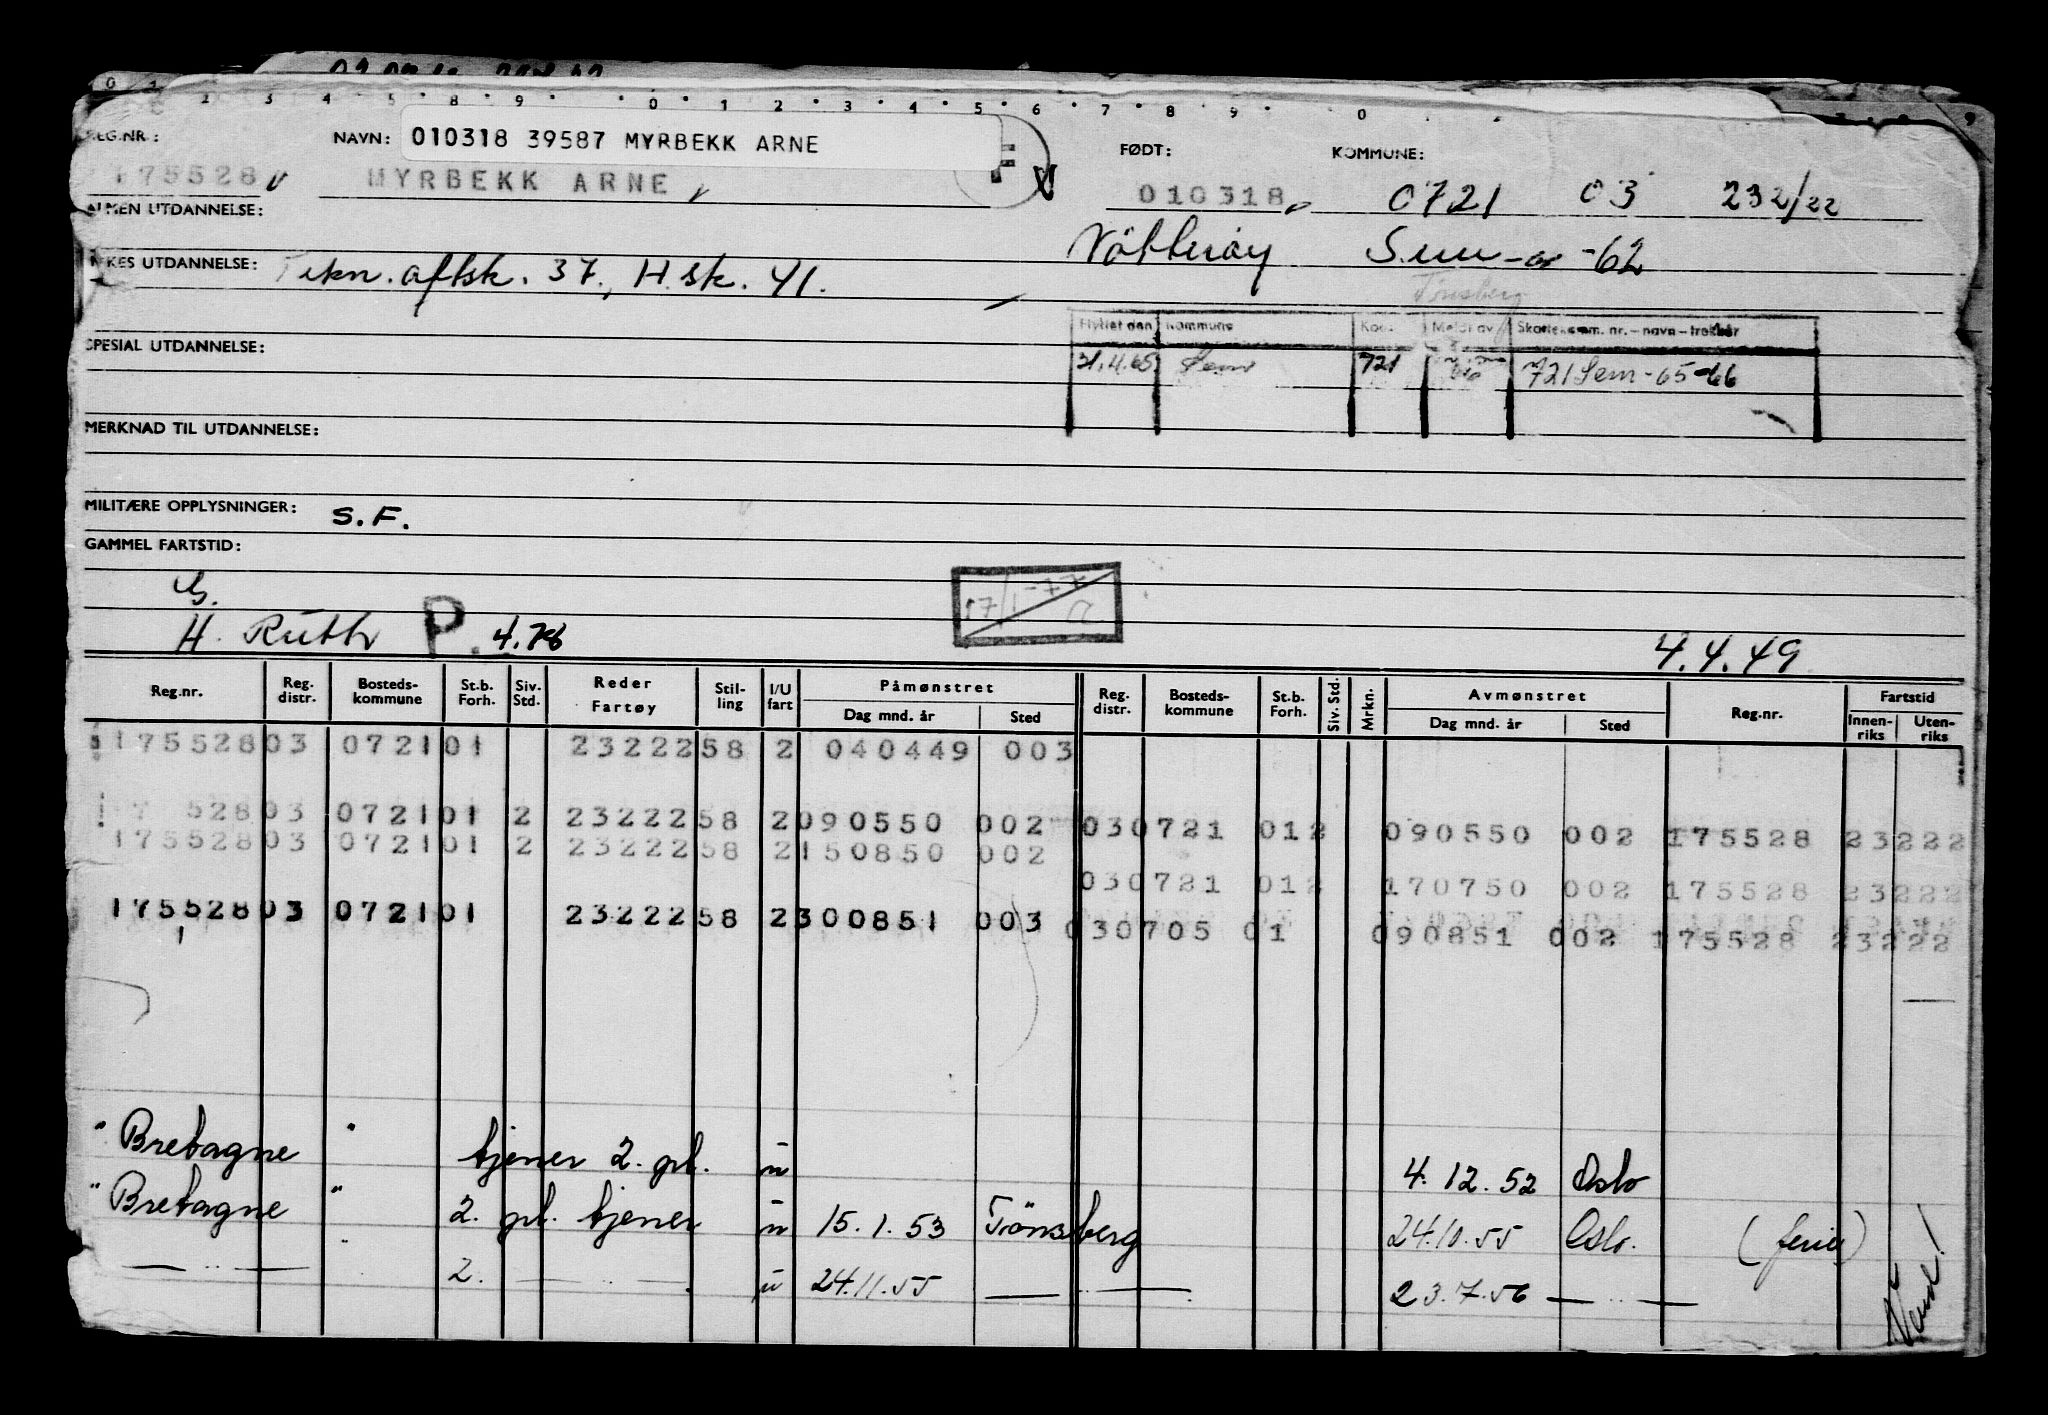 REG.NR: NAVN: 010318 39587 MYRBEKK ARNE F FØDT: KOMMUNE:
175528 MYRBEKK ARNE 010318 0721 03 232/22
ALMEN UTDANNELSE:
Sem -62
YRKES UTDANNELSE: Tekn. aftsk. 37., H.sk. 41.
Tønsberg
Flyttet den Kommune Kode Meldt av Skattekomm. nr. - navn - trekkår
21.4.65 Sem 721 721 Sem -65-66
SPESIAL UTDANNELSE:
MERKNAD TIL UTDANNELSE:
MILITÆRE OPPLYSNINGER: S.F.
GAMMEL FARTSTID:
G.
H. Ruth P. 4.78 17/1-77 4.4.49
Reg.nr. Reg. distr. Bosteds-kommune St.b. Forh. Siv. Std. Reder Fartøy Stil-ling I/U fart Påmønstret Dag mnd. år Sted Reg. distr. Bosteds-kommune St.b. Forh. Siv. Std. Mrkn. Avmønstret Dag mnd. år Sted Reg.nr. Fartstid Innen-riks Uten-riks
175528 03 0721 01 23222 58 2 040449 003
7 528 03 0721 01 2 23222 58 2 090550 002 03 0721 01 2 090550 002 175528 23222
175528 03 0721 01 2 23222 58 2 150850 002
03 0721 01 2 170750 002 175528 23222
175528 03 0721 01 23222 58 2 300851 003 03 0705 01 090851 002 175528 23222
"Bretagne" tjener 2. grl. u 4.12.52 Oslo
"Bretagne" 2. grl. tjener u 15.1.53 Tönsberg 24.10.55 Oslo. (ferie)
— " — 2. — " — u 24.11.55 — " — 23.7.56 — " —
Vend!